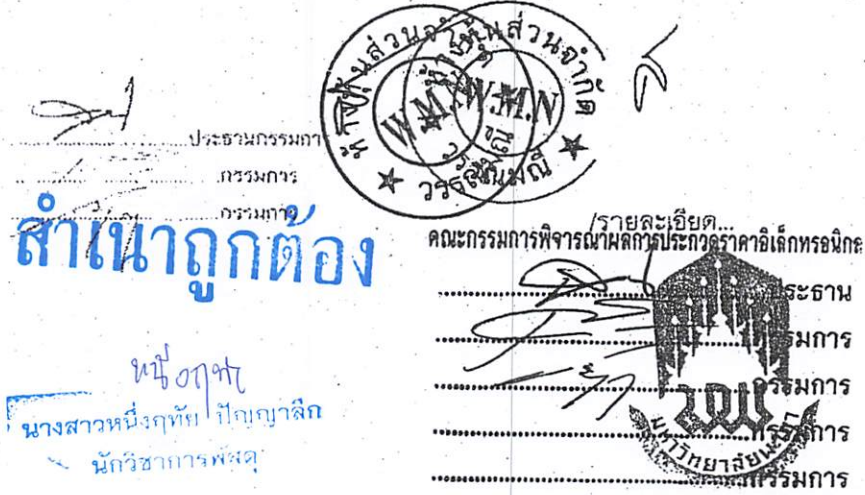 ห้างหุ้นส่วนจำกัด
W.M.N
วรรธน์มณี
ประธานกรรมกา
กรรมการ
กรรมการ
สำเนาถูกต้อง
หนึ่งฤทัย
นางสาวหนึ่งฤทัย ปัญญาลึก
นักวิชาการพัสดุ
/รายละเอียด...
คณะกรรมการพิจารณาผลการประกวดราคาอิเล็กทรอนิกส
ประธาน
กรรมการ
กรรมการ
กรรมการ
กรรมการ
มหาวิทยาลัยพะเยา